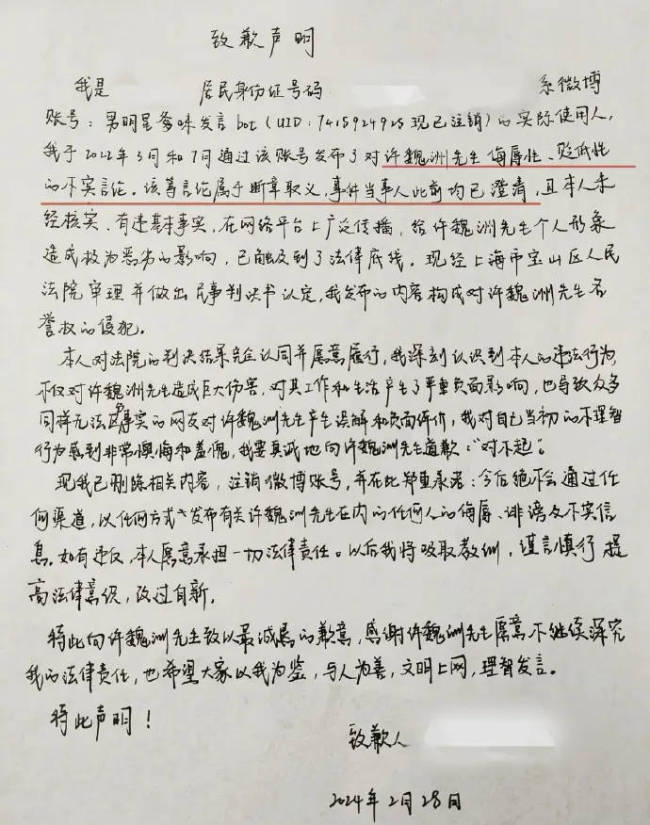 致歉声明
我是 居民身份证号码 系微博
账号：男明星爹味发言bot（UID：7415924925现已注销）的实际使用人，
我于2022年3月和7月通过该账号发布了对许魏洲先生侮辱性、贬低性
的不实言论。该等言论属于断章取义，事件当事人此前均已澄清，且本人未
经核实、有违基本事实，在网络平台上广泛传播，给许魏洲先生个人形象
造成极为恶劣的影响，已触及到了法律底线。现经上海市宝山区人民
法院审理并做出民事判决书认定，我发布的内容构成对许魏洲先生名
誉权的侵犯。
本人对法院的判决结果完全认同并愿意履行，我深刻认识到本人的违法行为，
不仅对许魏洲先生造成巨大伤害，对其工作和生活产生了严重负面影响，也导致众多
同样无法知事实的网友对许魏洲先生产生误解和负面评价，我对自己当初的不理智
行为感到非常懊悔和羞愧，我要真诚地向许魏洲先生道歉：“对不起”。
现我已删除相关内容，注销微博账号，并在此郑重承诺：今后绝不会通过任
何渠道，以任何方式发布有关许魏洲先生在内的任何人的侮辱、诽谤及不实信
息。如有违反，本人愿意承担一切法律责任。以后我将吸取教训，谨言慎行 提
高法律意识，改过自新。
特此向许魏洲先生致以最诚恳的歉意，感谢许魏洲先生愿意不继续深究
我的法律责任，也希望大家以我为鉴，与人为善，文明上网，理智发言。
特此声明！
致歉人
2024年2月28日